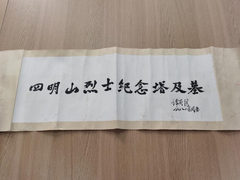 四明山烈士纪念塔及墓